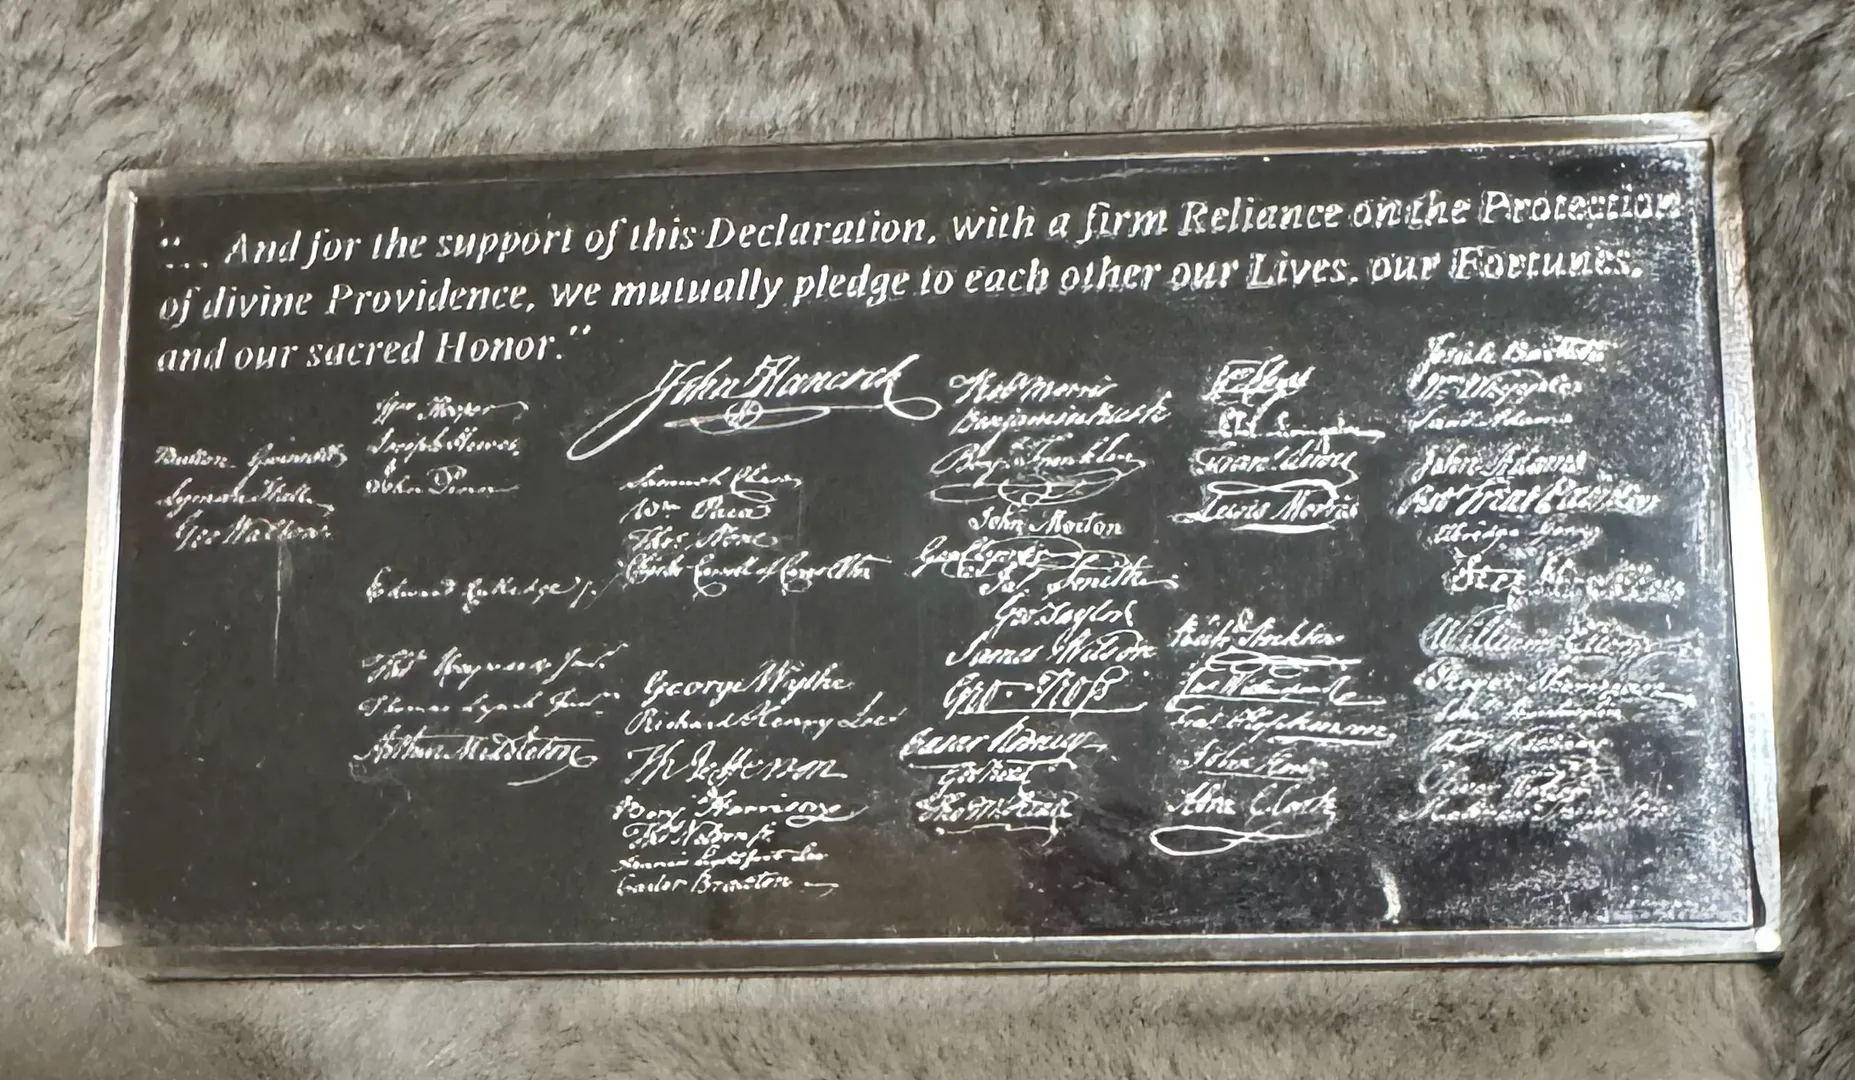 "... And for the support of this Declaration, with a firm Reliance on the Protection
of divine Providence, we mutually pledge to each other our Lives, our Fortunes,
and our sacred Honor."
Button Gwinnett
Lyman Hall
Geo Walton
Wm Hooper
Joseph Hewes
John Penn
Edward Rutledge
Thos Heyward Junr
Thomas Lynch Junr
Arthur Middleton
John Hancock
Samuel Chase
Wm Paca
Thos Stone
Charles Carroll of Carrollton
George Wythe
Richard Henry Lee
Th Jefferson
Benj Harrison
Thos Nelson jr
Francis Lightfoot Lee
Carter Braxton
Robt Morris
Benjamin Rush
Benja Franklin
John Morton
Geo Clymer
Jas Smith
Geo Taylor
James Wilson
Geo Ross
Caesar Rodney
Geo Read
Tho M:Kean
Lewis Morris
Richd Stockton
Jno Witherspoon
Fras Hopkinson
John Hart
Abra Clark
Josiah Bartlett
Wm Whipple
Saml Adams
John Adams
Robt Treat Paine
Elbridge Gerry
Step Hopkins
William Ellery
Roger Sherman
Saml Huntington
Wm Williams
Oliver Wolcott
Matthew Thornton